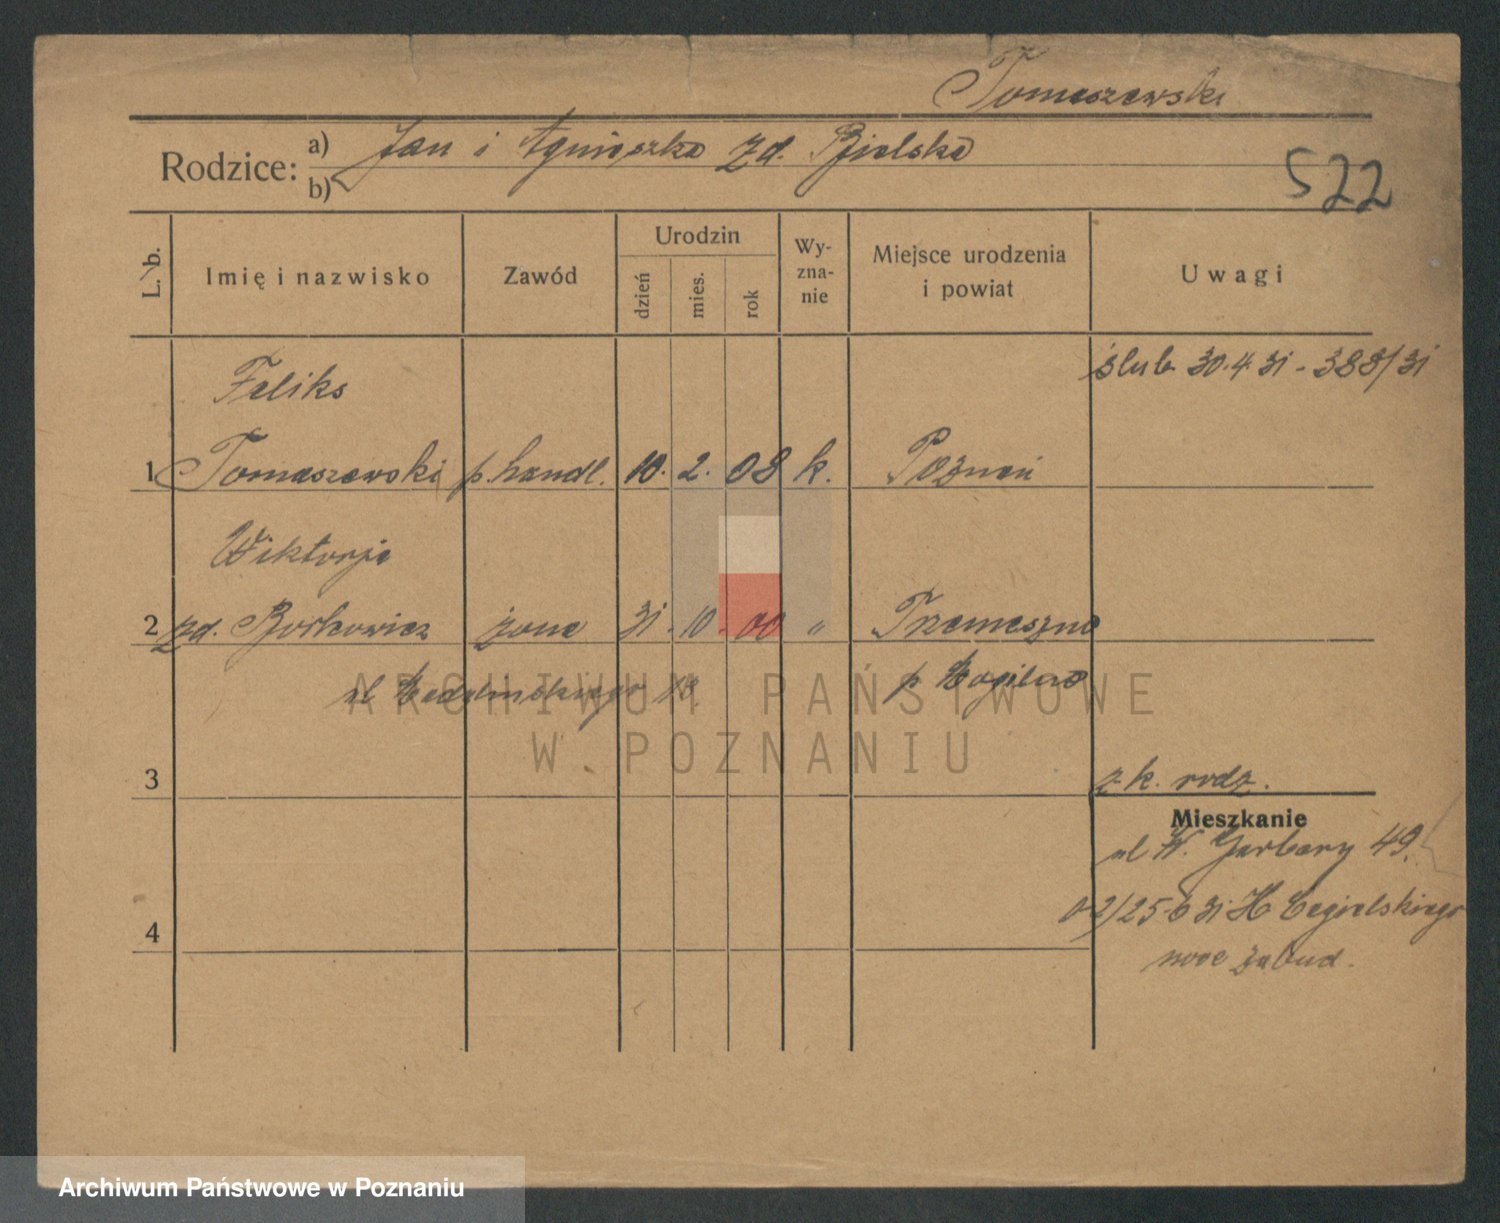 Tomaszewski
Rodzice: a) Jan i Agnieszka zd. Bielska
b)
522
L. b.
Imię i nazwisko
Zawód
Urodzin
dzień
mies.
rok
Wy-
zna-
nie
Miejsce urodzenia
i powiat
Uwagi
Feliks
ślub 30.4.31 - 388/31
1 Tomaszewski p. handl. 10. 2. 08 k. Poznań
Wiktorja
2 zd. Borkowicz żona 31. 10. 00 " Trzemeszno
ul 18
p. Mogilno
ARCHIWUM PAŃSTWOWE
W POZNANIU
3
z k. rodz.
Mieszkanie
ul W. Garbary 49.
4
2/25.6 31 H Cegielskiego
nowe zabud.
Archiwum Państwowe w Poznaniu